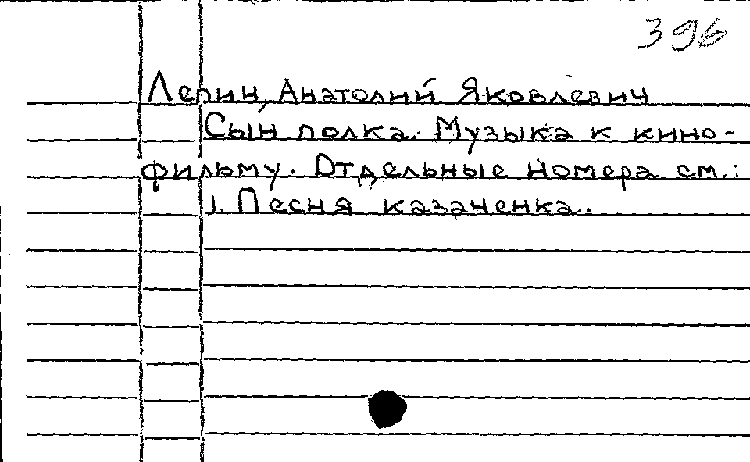 396
Лепин, Анатолий Яковлевич
Сын полка. Музыка к кино-
фильму. Отдельные номера см.:
1. Песня казаченка.